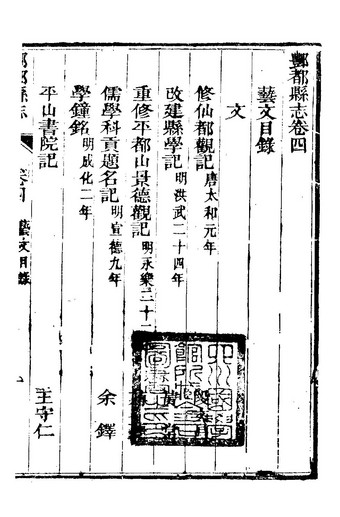 酆都縣志卷四
藝文目錄
文
修仙都觀記 唐太和元年 段
改建縣學記 明洪武二十四年 黃
重修平都山景德觀記 明永樂二十
儒學科貢題名記 明宣德九年
學鐘銘 明成化二年 余鐸
平山書院記 王守仁
酆都縣志 卷四 藝文目錄 一